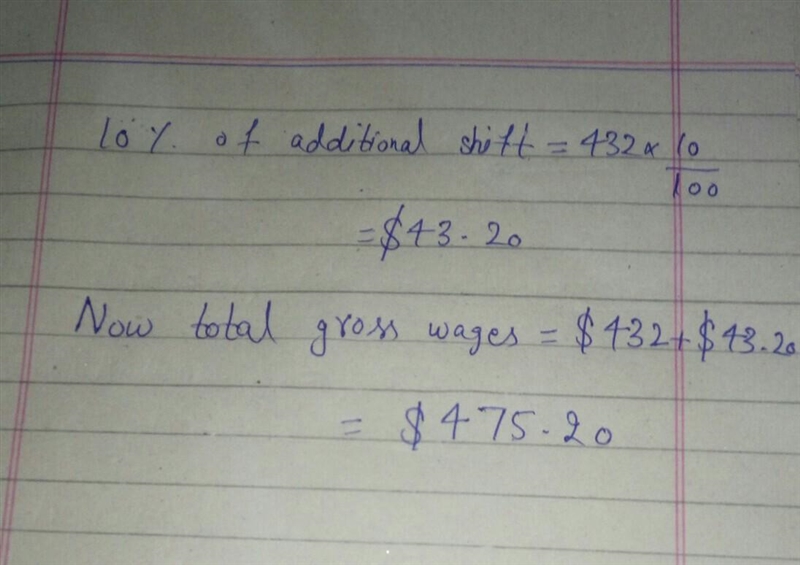 10% of additional shift = 432 × 10/100
= $43.20
Now total gross wages = $432 + $43.20
= $475.20